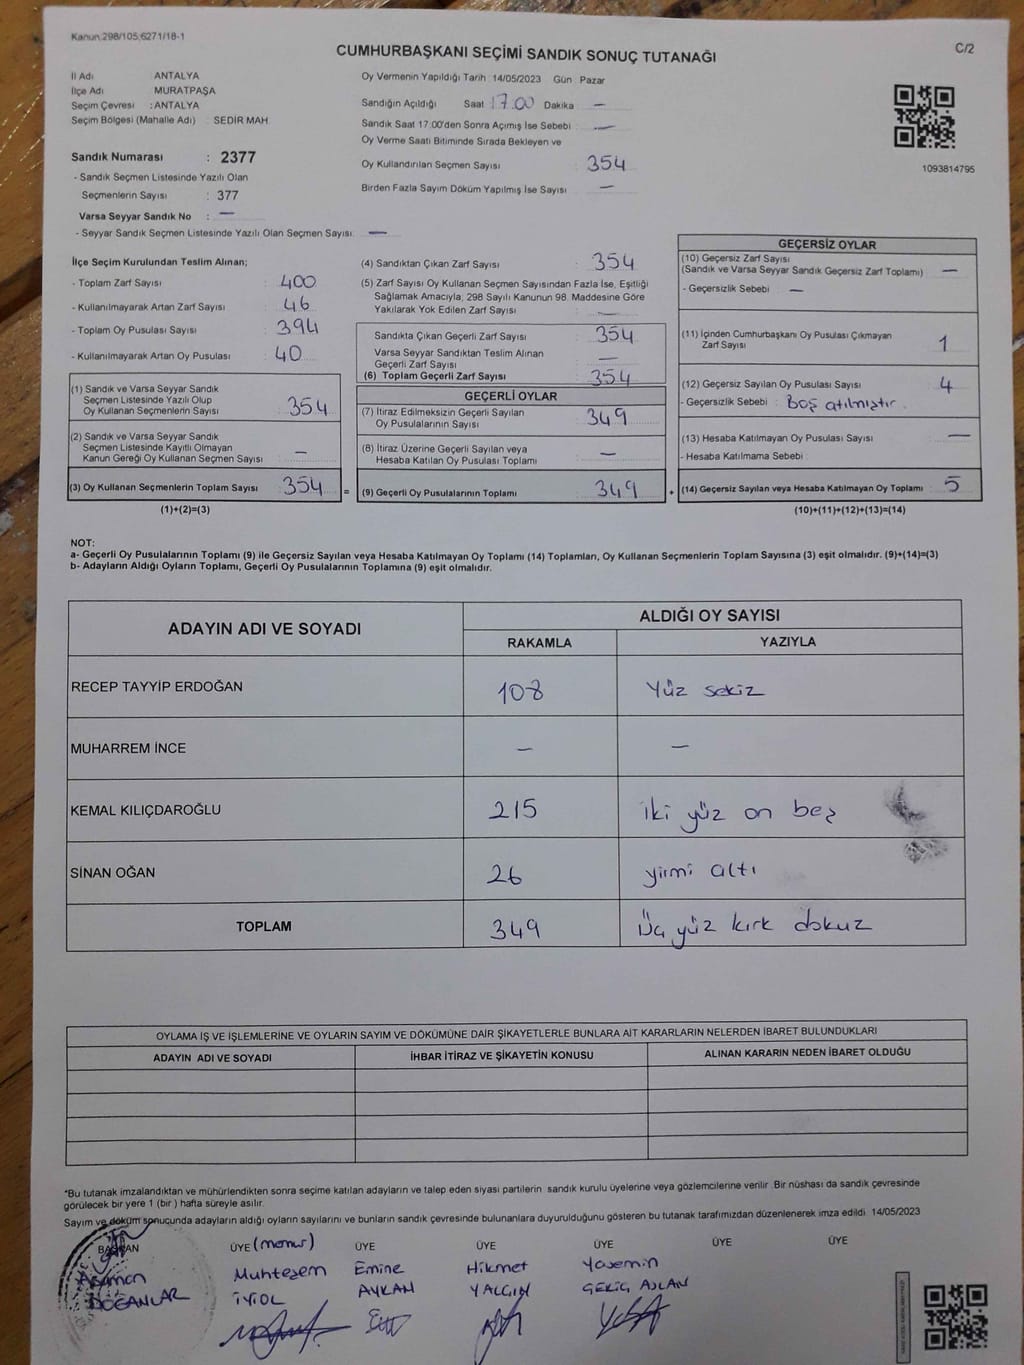 Kanun:298/105;6271/18-1
CUMHURBAŞKANI SEÇİMİ SANDIK SONUÇ TUTANAĞI
C/2
İl Adı : ANTALYA
İlçe Adı MURATPAŞA
Seçim Çevresi : ANTALYA
Seçim Bölgesi (Mahalle Adı) : SEDİR MAH.
Sandık Numarası : 2377
- Sandık Seçmen Listesinde Yazılı Olan
Seçmenlerin Sayısı : 377
Varsa Seyyar Sandık No : —
- Seyyar Sandık Seçmen Listesinde Yazılı Olan Seçmen Sayısı: —
Oy Vermenin Yapıldığı Tarih : 14/05/2023 Gün Pazar
Sandığın Açıldığı Saat 17.00 Dakika —
Sandık Saat 17:00'den Sonra Açımış İse Sebebi : —
Oy Verme Saati Bitiminde Sırada Bekleyen ve
Oy Kullandırılan Seçmen Sayısı : 354
Birden Fazla Sayım Döküm Yapılmış İse Sayısı : —
1093814795
İlçe Seçim Kurulundan Teslim Alınan;
- Toplam Zarf Sayısı : 400
- Kullanılmayarak Artan Zarf Sayısı : 46
- Toplam Oy Pusulası Sayısı : 394
- Kullanılmayarak Artan Oy Pusulası : 40
(1) Sandık ve Varsa Seyyar Sandık
Seçmen Listesinde Yazılı Olup
Oy Kullanan Seçmenlerin Sayısı : 354
(2) Sandık ve Varsa Seyyar Sandık
Seçmen Listesinde Kayıtlı Olmayan
Kanun Gereği Oy Kullanan Seçmen Sayısı : —
(3) Oy Kullanan Seçmenlerin Toplam Sayısı : 354 =
(1)+(2)=(3)
(4) Sandıktan Çıkan Zarf Sayısı : 354
(5) Zarf Sayısı Oy Kullanan Seçmen Sayısından Fazla İse, Eşitliği
Sağlamak Amacıyla, 298 Sayılı Kanunun 98. Maddesine Göre
Yakılarak Yok Edilen Zarf Sayısı : —
Sandıkta Çıkan Geçerli Zarf Sayısı : 354
Varsa Seyyar Sandıktan Teslim Alınan
Geçerli Zarf Sayısı : —
(6) Toplam Geçerli Zarf Sayısı : 354
GEÇERLİ OYLAR
(7) İtiraz Edilmeksizin Geçerli Sayılan
Oy Pusulalarının Sayısı : 349
(8) İtiraz Üzerine Geçerli Sayılan veya
Hesaba Katılan Oy Pusulası Toplamı : —
(9) Geçerli Oy Pusulalarının Toplamı : 349 +
GEÇERSİZ OYLAR
(10) Geçersiz Zarf Sayısı
(Sandık ve Varsa Seyyar Sandık Geçersiz Zarf Toplamı) : —
- Geçersizlik Sebebi : —
(11) İçinden Cumhurbaşkanı Oy Pusulası Çıkmayan
Zarf Sayısı : 1
(12) Geçersiz Sayılan Oy Pusulası Sayısı : 4
- Geçersizlik Sebebi : Boş atılmıştır.
(13) Hesaba Katılmayan Oy Pusulası Sayısı : —
- Hesaba Katılmama Sebebi :
(14) Geçersiz Sayılan veya Hesaba Katılmayan Oy Toplamı : 5
(10)+(11)+(12)+(13)=(14)
NOT:
a- Geçerli Oy Pusulalarının Toplamı (9) ile Geçersiz Sayılan veya Hesaba Katılmayan Oy Toplamı (14) Toplamları, Oy Kullanan Seçmenlerin Toplam Sayısına (3) eşit olmalıdır. (9)+(14)=(3)
b- Adayların Aldığı Oyların Toplamı, Geçerli Oy Pusulalarının Toplamına (9) eşit olmalıdır.
ADAYIN ADI VE SOYADI ALDIĞI OY SAYISI
RAKAMLA YAZIYLA
RECEP TAYYİP ERDOĞAN 108 Yüz sekiz
MUHARREM İNCE — —
KEMAL KILIÇDAROĞLU 215 iki yüz on beş
SİNAN OĞAN 26 yirmi altı
TOPLAM 349 Üç yüz kırk dokuz
OYLAMA İŞ VE İŞLEMLERİNE VE OYLARIN SAYIM VE DÖKÜMÜNE DAİR ŞİKAYETLERLE BUNLARA AİT KARARLARIN NELERDEN İBARET BULUNDUKLARI
ADAYIN ADI VE SOYADI İHBAR İTİRAZ VE ŞİKAYETİN KONUSU ALINAN KARARIN NEDEN İBARET OLDUĞU
*Bu tutanak imzalandıktan ve mühürlendikten sonra seçime katılan adayların ve talep eden siyasi partilerin sandık kurulu üyelerine veya gözlemcilerine verilir. Bir nüshası da sandık çevresinde
görülecek bir yere 1 (bir) hafta süreyle asılır.
Sayım ve döküm sonuçunda adayların aldığı oyların sayılarını ve bunların sandık çevresinde bulunanlara duyurulduğunu gösteren bu tutanak tarafımızdan düzenlenerek imza edildi. 14/05/2023
BAŞKAN ÜYE (memur) ÜYE ÜYE ÜYE ÜYE ÜYE
Muhteşem Emine Hikmet Yasemin
DOĞANLAR İYİOL AYKAN YALÇIN